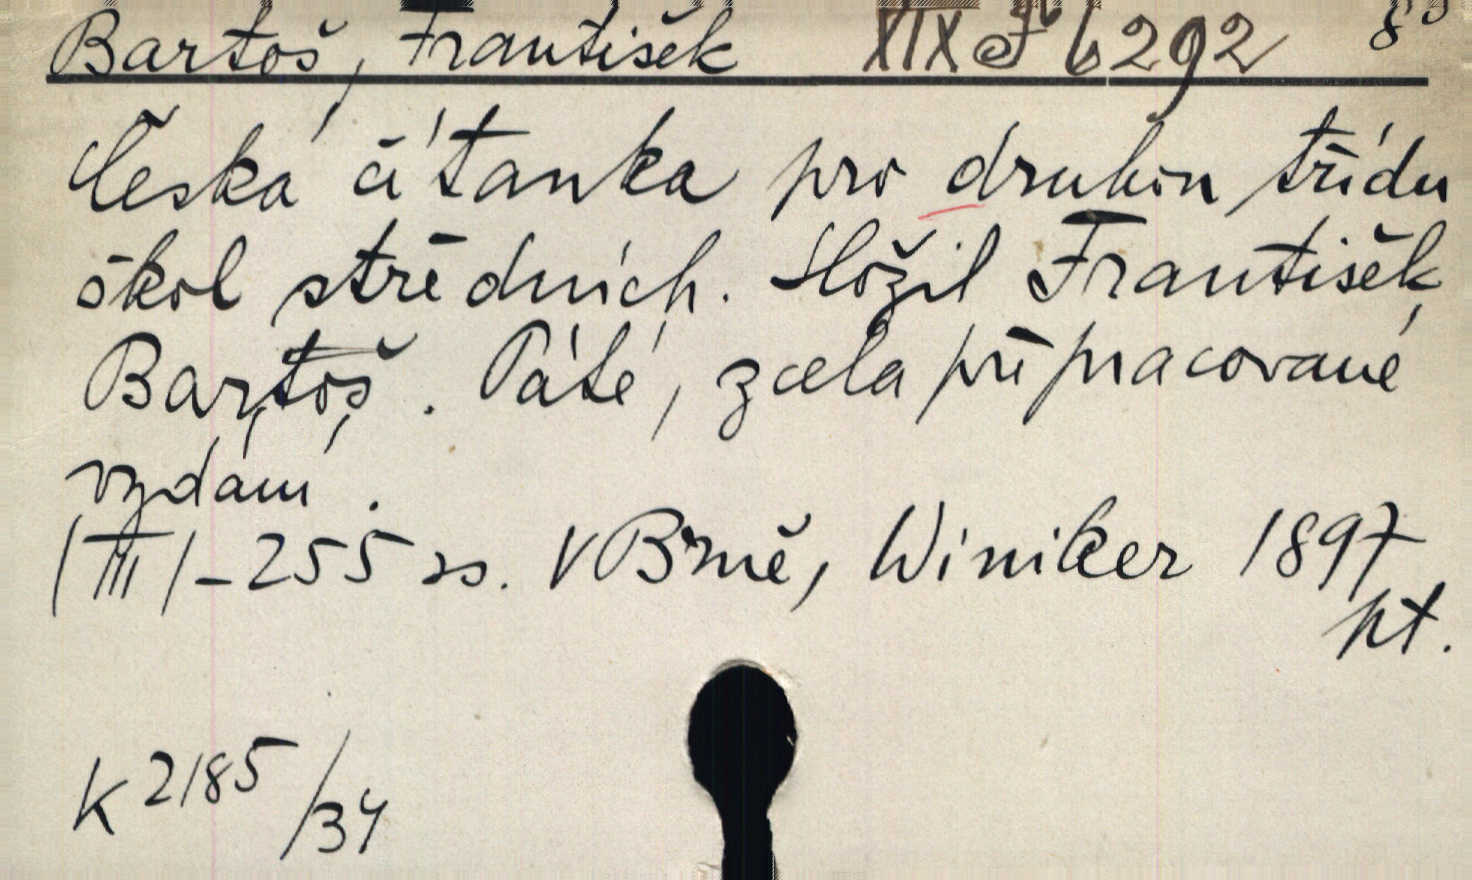 Bartoš, František XIX F 6292 8°
Česká čítanka pro druhou třídu
škol středních. Složil František
Bartoš. Páté, zcela přepracované
vydání.
(III)-255 ss. V Brně, Winiker 1897
pt.
K 2185/34